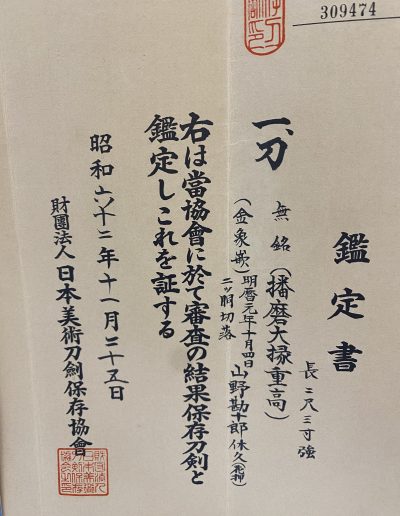 309474
鑑定書
一、刀
長二尺三寸強
無銘(播磨大掾重高)
(金象嵌)明暦元年十月四日 山野勘十郎休久(花押)
二ッ胴切落
右は當協會に於て審査の結果保存刀剣と
鑑定しこれを証する
昭和六十二年十一月二十五日
財團法人日本美術刀劍保存協會